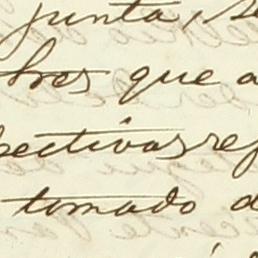 junta, se
bres que a
pectivas re
tomado d